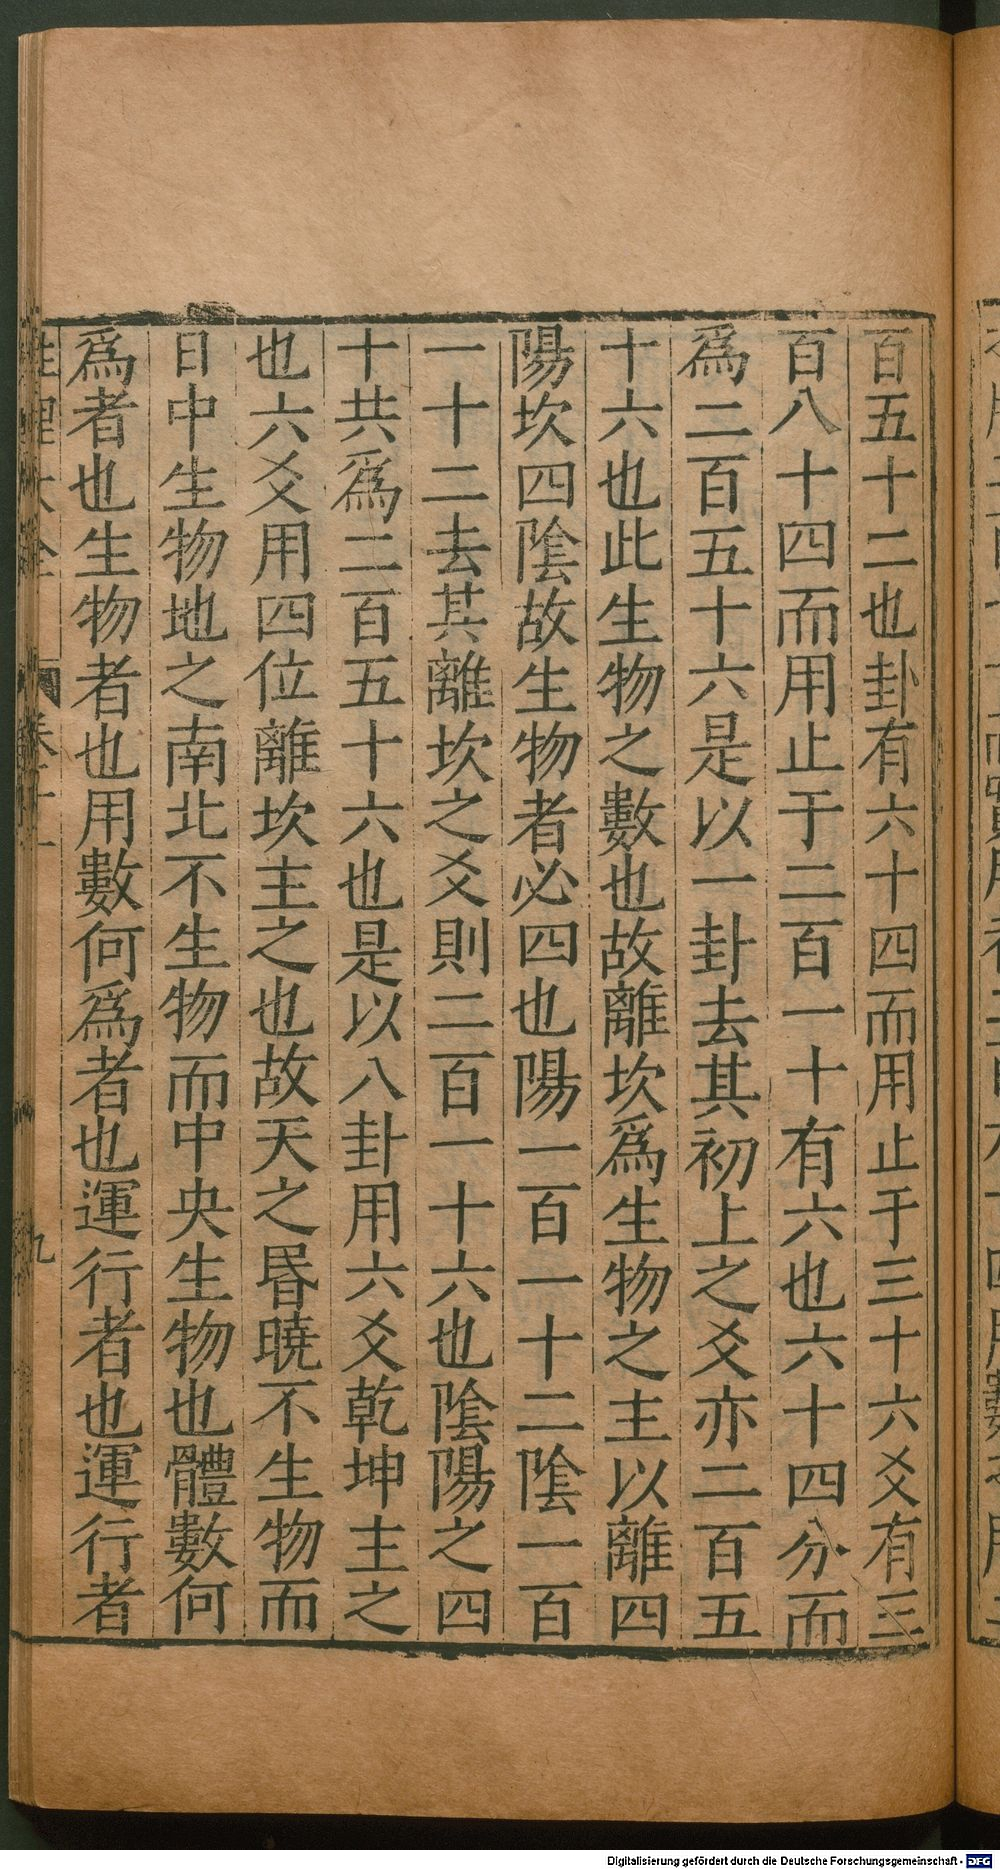 百五十二也卦有六十四而用止于三十六爻有三
百八十四而用止于二百一十有六也六十四分而
爲二百五十六是以一卦去其初上之爻亦二百五
十六也此生物之數也故離坎爲生物之主以離四
陽坎四陰故生物者必四也陽一百一十二陰一百
一十二去其離坎之爻則二百一十六也陰陽之四
十共爲二百五十六也是以八卦用六爻乾坤主之
也六爻用四位離坎主之也故天之昬曉不生物而
日中生物地之南北不生物而中央生物也體數何
爲者也生物者也用數何爲者也運行者也運行者
九
Digitalisierung gefördert durch die Deutsche Forschungsgemeinschaft - DFG